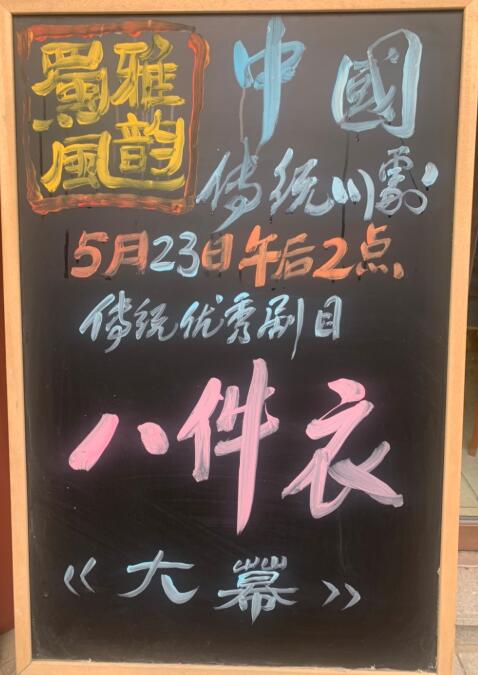 蜀風雅韵
中國
傳统川劇
5月23日午后2点
傳统优秀剧目
八件衣
《大幕》